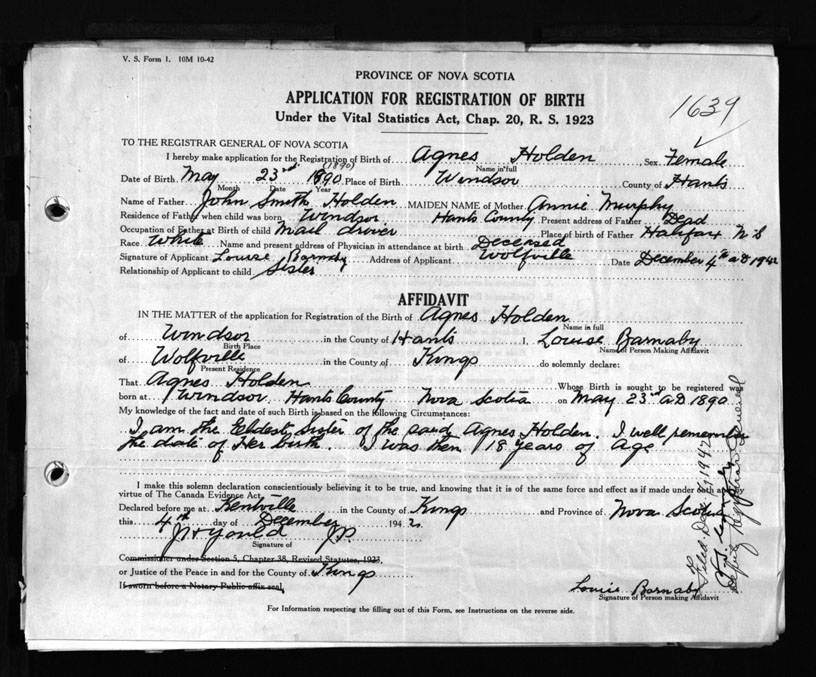 V. S. Form 1. 10M 10-42
PROVINCE OF NOVA SCOTIA
APPLICATION FOR REGISTRATION OF BIRTH
Under the Vital Statistics Act, Chap. 20, R. S. 1923
1639
TO THE REGISTRAR GENERAL OF NOVA SCOTIA
I hereby make application for the Registration of Birth of Agnes Holden, Sex Female
Name in full
(1890)
Date of Birth May 23rd 1890 Place of Birth Windsor County of Hants
Month Date Year
Name of Father John Smith Holden MAIDEN NAME of Mother Annie Murphy
Residence of Father when child was born Windsor Hants County Present address of Father Dead
Occupation of Father at Birth of child Mail driver Place of Birth of Father Halifax N S
Race White Name and present address of Physician in attendance at birth Deceased
Signature of Applicant Louise Barnaby Address of Applicant Wolfville Date December 4th A D 1942
Relationship of Applicant to child Sister
AFFIDAVIT
IN THE MATTER of the application for Registration of the Birth of Agnes Holden
Name in full
of Windsor in the County of Hants I, Louise Barnaby
Birth Place Name of Person Making Affidavit
of Wolfville in the County of Kings do solemnly declare:
Present Residence
That Agnes Holden Whose Birth is sought to be registered was
born at Windsor Hants County Nova Scotia on May 23rd A D 1890
My knowledge of the fact and date of such Birth is based on the following Circumstances:
I am the Eeldest Sister of the said Agnes Holden. I well remember
the date of Her birth. I was then 18 years of age
I make this solemn declaration conscientiously believing it to be true, and knowing that it is of the same force and effect as if made under oath by
virtue of The Canada Evidence Act.
Declared before me at Kentville in the County of Kings and Province of Nova Scotia
this 4th day of December 1942.
J P
Signature of
Commissioner under Section 5, Chapter 38, Revised Statutes, 1923,
or Justice of the Peace in and for the County of Kings
If sworn before a Notary Public affix seal,
Louise Barnaby
Signature of Person making Affidavit
For Information respecting the filling out of this Form, see Instructions on the reverse side.
Filed Dec 1942
Deputy Registrar General